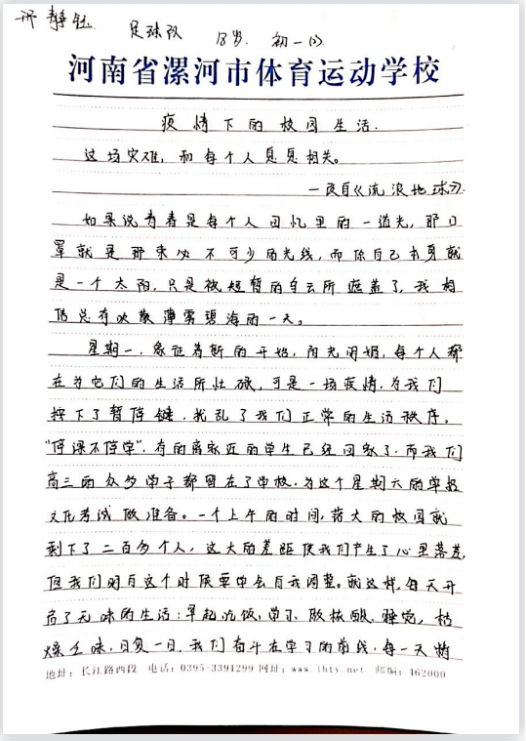 邢静钰 足球队 18岁. 初一(2)
河南省漯河市体育运动学校
疫情下的校园生活.
这场灾难，和每个人息息相关。
—取自《流浪地球》
如果说青春是每个人回忆里的一道光，那口
罩就是那束必不可少的光线，而你自己本身就
是一个太阳，只是被短暂的乌云所遮盖了，我相
信总有吹散薄雾碧海的一天。
星期一.象征着新的开始，阳光明媚，每个人都
在为它们的生活所忙碌，可是一场疫情.为我们
按下了暂停键.扰乱了我们正常的生活秩序，
“停课不停学”.有的离家近的学生已经回家了.而我们
高三的众多学子都留在了学校.为这个星期六的单招
文化考试做准备。一个上午的时间，偌大的校园就
剩下了二百多个人，这大的差距使我们产生了心里落差，
但我们明白这个时候要学会自我调整。就这样，每天开
启了无味的生活：早起吃饭，学习.做核酸、睡觉，枯
燥乏味.日复一日.我们奋斗在学习的前线，每一天
地址：长江路西段 电话：0395-3391299 网址：www.lhty.net 邮编：462000